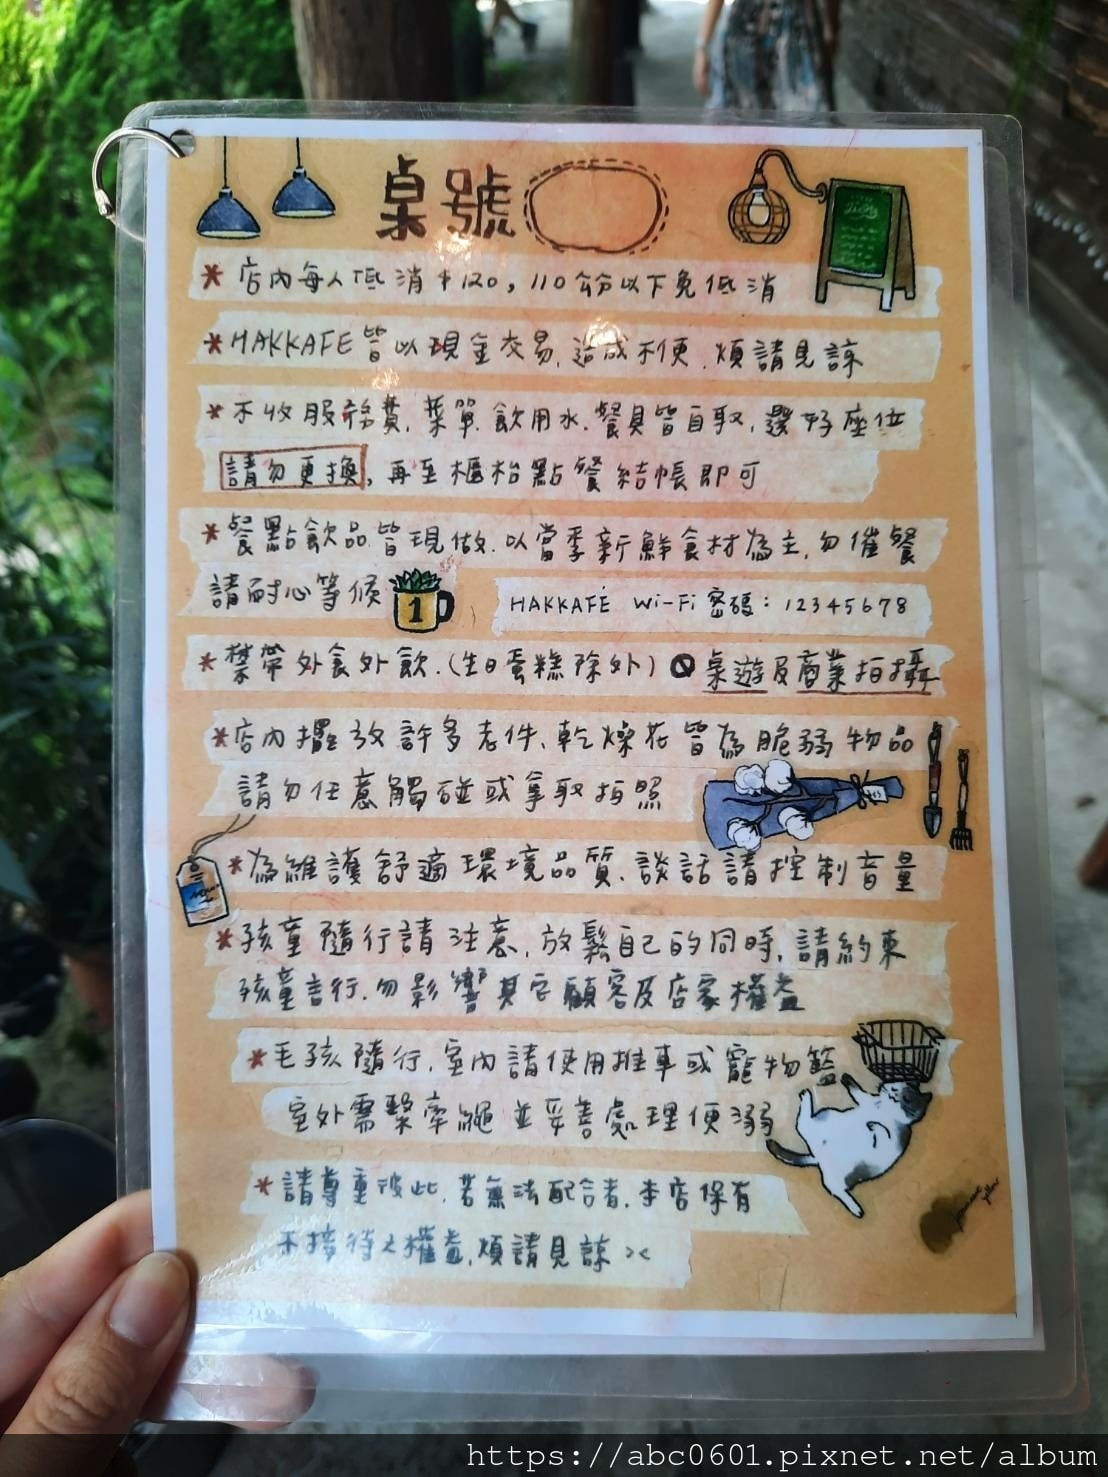 桌號
* 店內每人低消$120，110公分以下免低消
* HAKKAFE 皆以現金交易，造成不便，煩請見諒
* 不收服務費，菜單、飲用水、餐具皆自取，選好座位
請勿更換，再至櫃枱點餐結帳即可
* 餐點飲品皆現做，以當季新鮮食材為主，勿催餐
請耐心等候
1
HAKKAFÉ Wi-Fi 密碼：12345678
* 禁帶外食外飲.(生日蛋糕除外) 🚫桌遊及商業拍攝
* 店內擺放許多老件、乾燥花皆為脆弱物品
請勿任意觸碰或拿取拍照
* 為維護舒適環境品質，談話請控制音量
* 孩童隨行請注意，放鬆自己的同時，請約束
孩童言行，勿影響其它顧客及店家權益
* 毛孩隨行，室內請使用推車或寵物籃
室外需繫牽繩並妥善處理便溺
* 請尊重彼此，若無法配合者，本店保有
不接待之權益，煩請見諒 ><
https://abc0601.pixnet.net/album